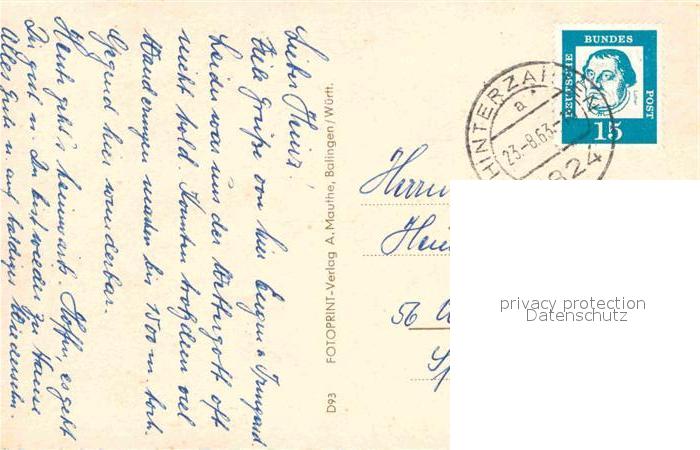 Lieber Heinz!
Viele Grüße von hier Eugen u. Irmgard
Leider war uns der Wettergott oft
nicht hold. Konnten trotzdem viel
Wanderungen machen bis 1500 m hoch.
Gegend hier wunderbar.
Heute geht's heimwärts. Hoffe, es geht
Dir gut u. Du bist wieder zu Hause
Alles Gute u. auf baldiges Wiedersehn.
D93 FOTOPRINT-Verlag A. Mauthe, Balingen/Württ.
DEUTSCHE BUNDES POST
15
HINTERZARTEN
a
23.-8.63.
824
Herrn
Hei
56
privacy protection
Datenschutz